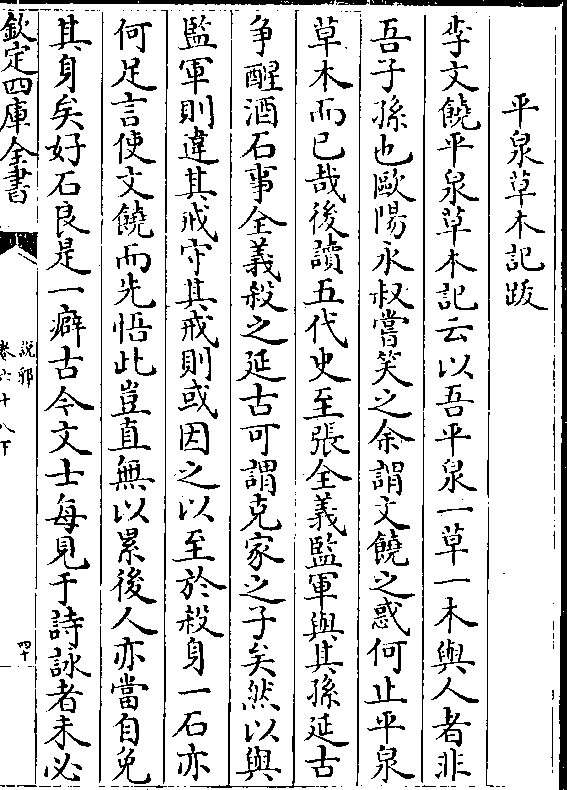 平泉草木記跋
李文饒平泉草木記云以吾平泉一草一木與人者非
吾子孫也歐陽永叔嘗笑之余謂文饒之惑何止平泉
草木而已哉後讀五代史至張全義監軍與其孫延古
争醒酒石事全義殺之延古可謂克家之子矣然以與
監軍則違其戒守其戒則或因之以至於殺身一石亦
何足言使文饒而先悟此豈直無以累後人亦當自免
其身矣好石良是一癖古今文士每見于詩詠者未必
欽定四庫全書
説郛
卷六十八下
四十